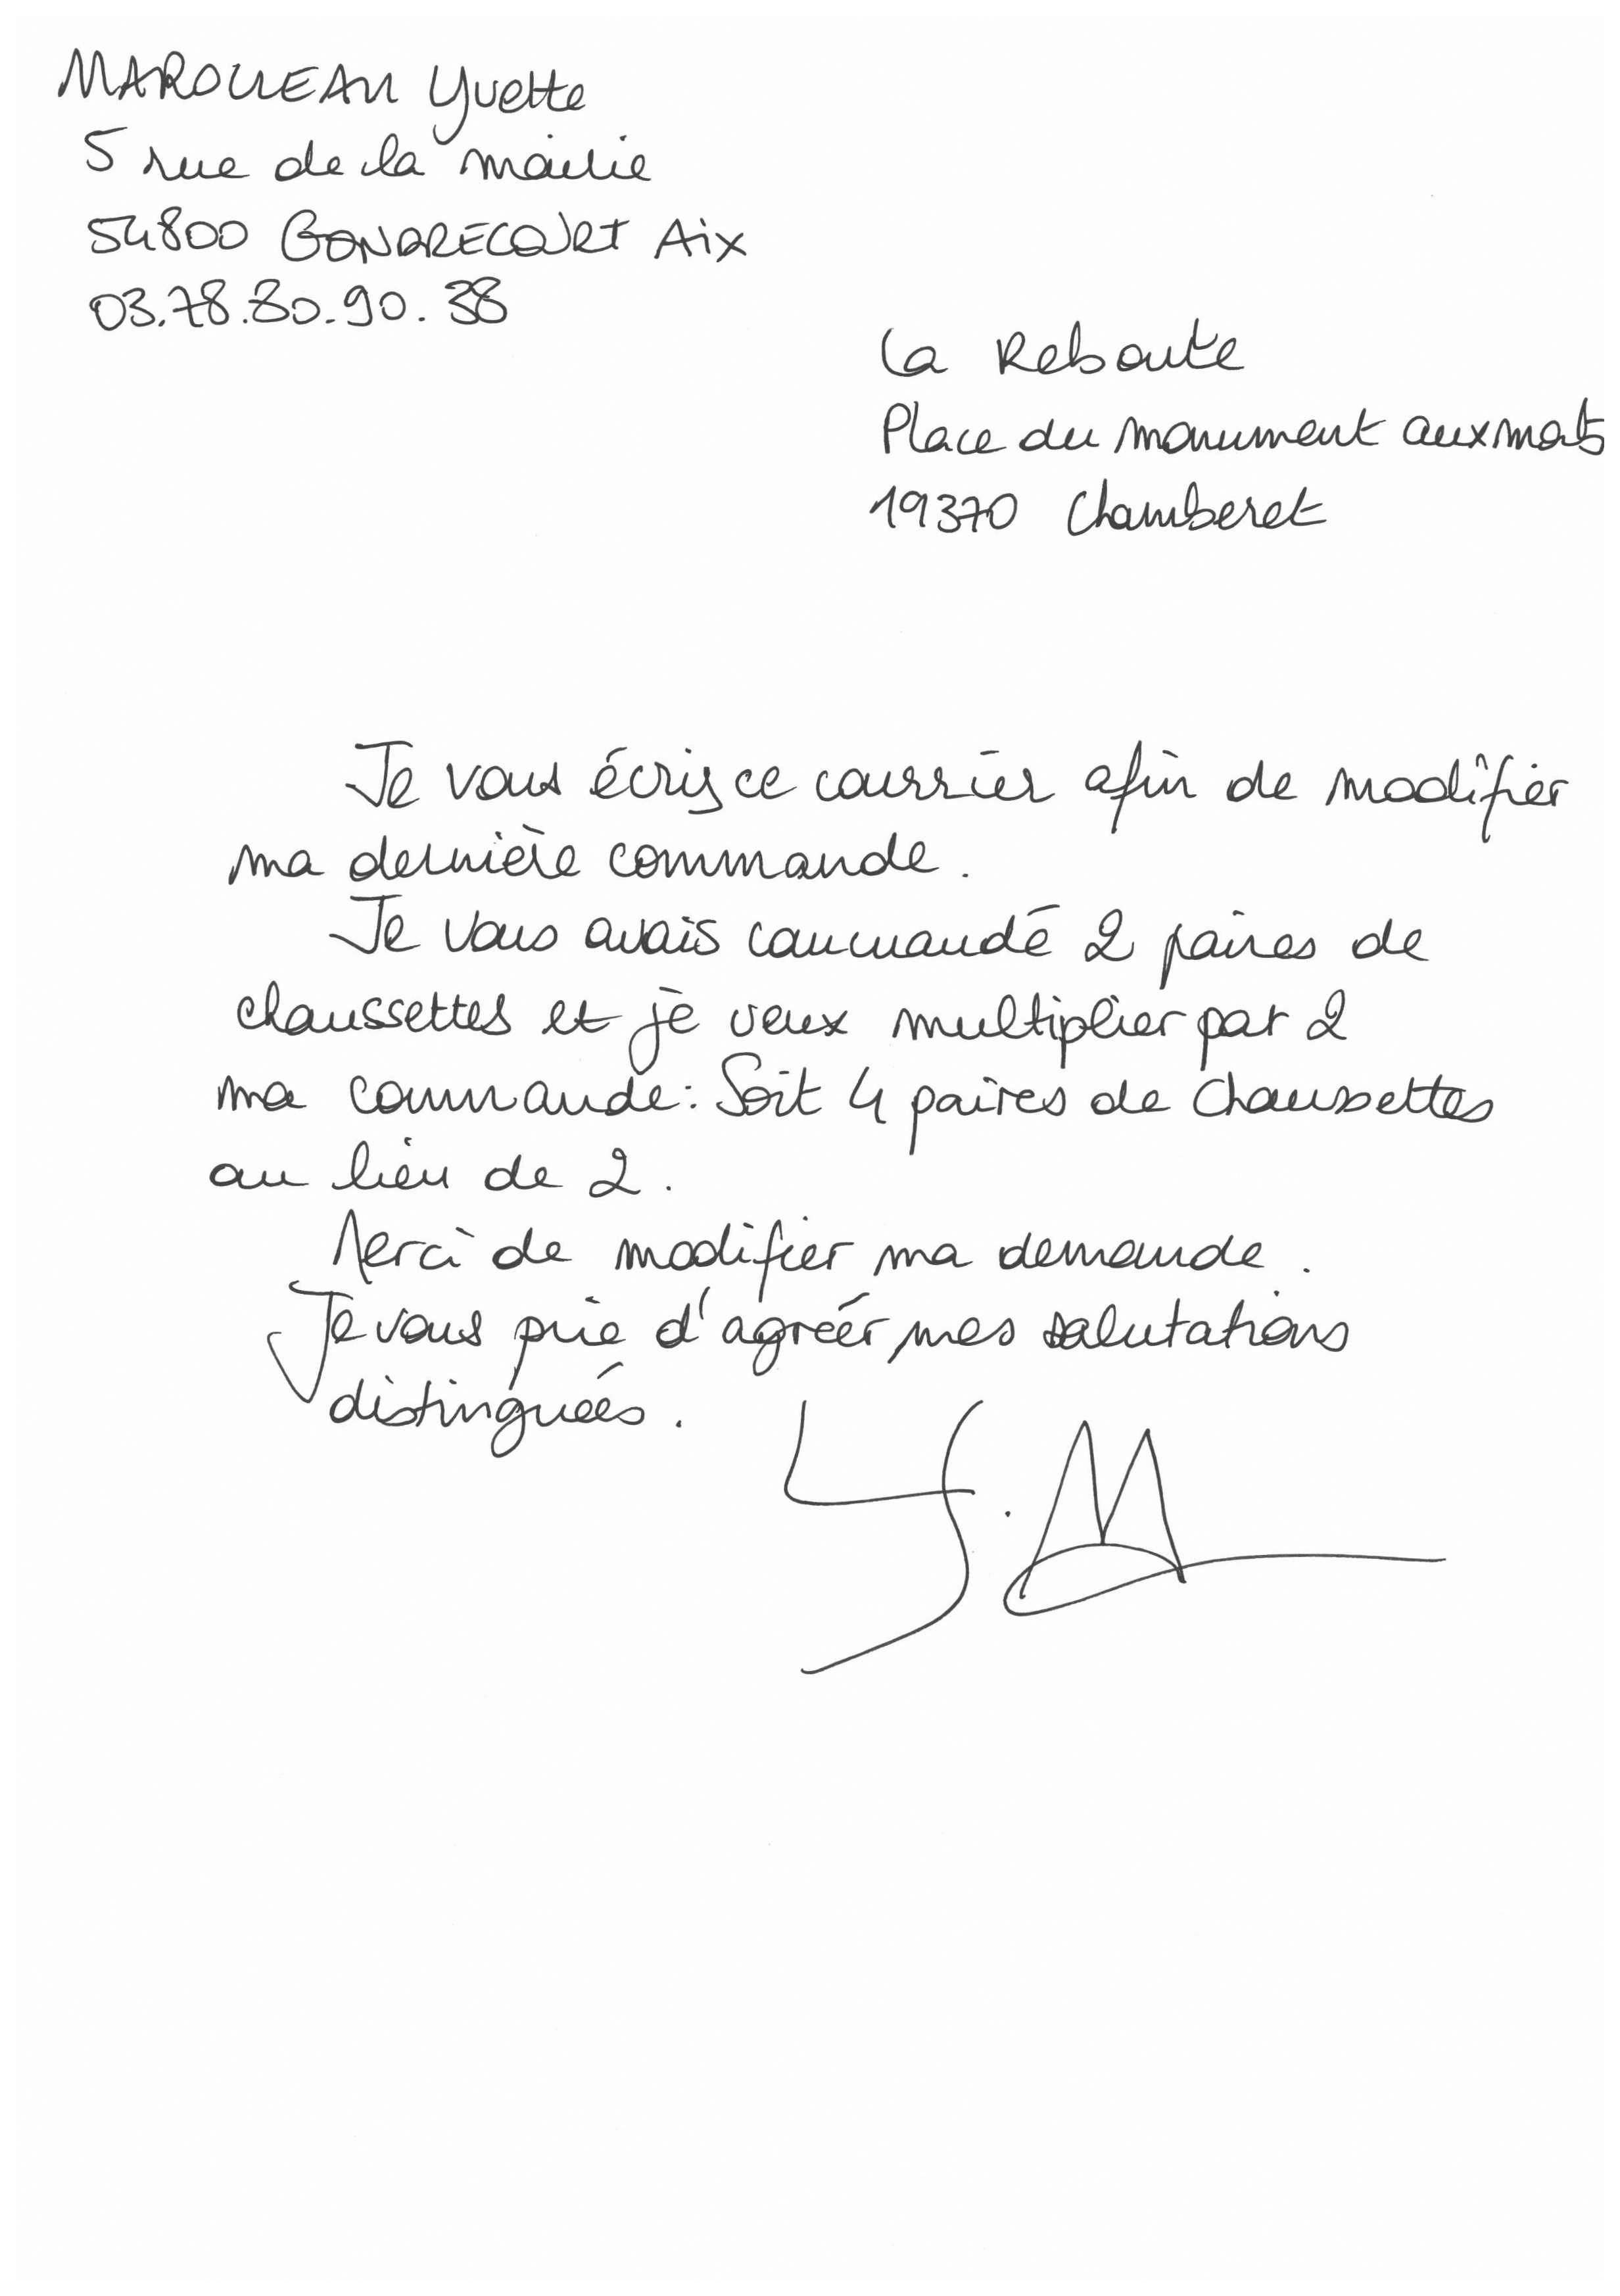 MAROLLEAU Yvette
5 rue de la mairie
54800 GONDRECOURT Aix
03.78.80.90.38
La Reboute
Place du monument aux morts
19370 Chamberet
Je vous écris ce courrier afin de modifier
ma dernière commande.
Je vous avais commandé 2 paires de
chaussettes et je veux multiplier par 2
ma commande : Soit 4 paires de chaussettes
au lieu de 2.
Merci de modifier ma demande.
Je vous prie d'agréer mes salutations
distinguées.
Y.M